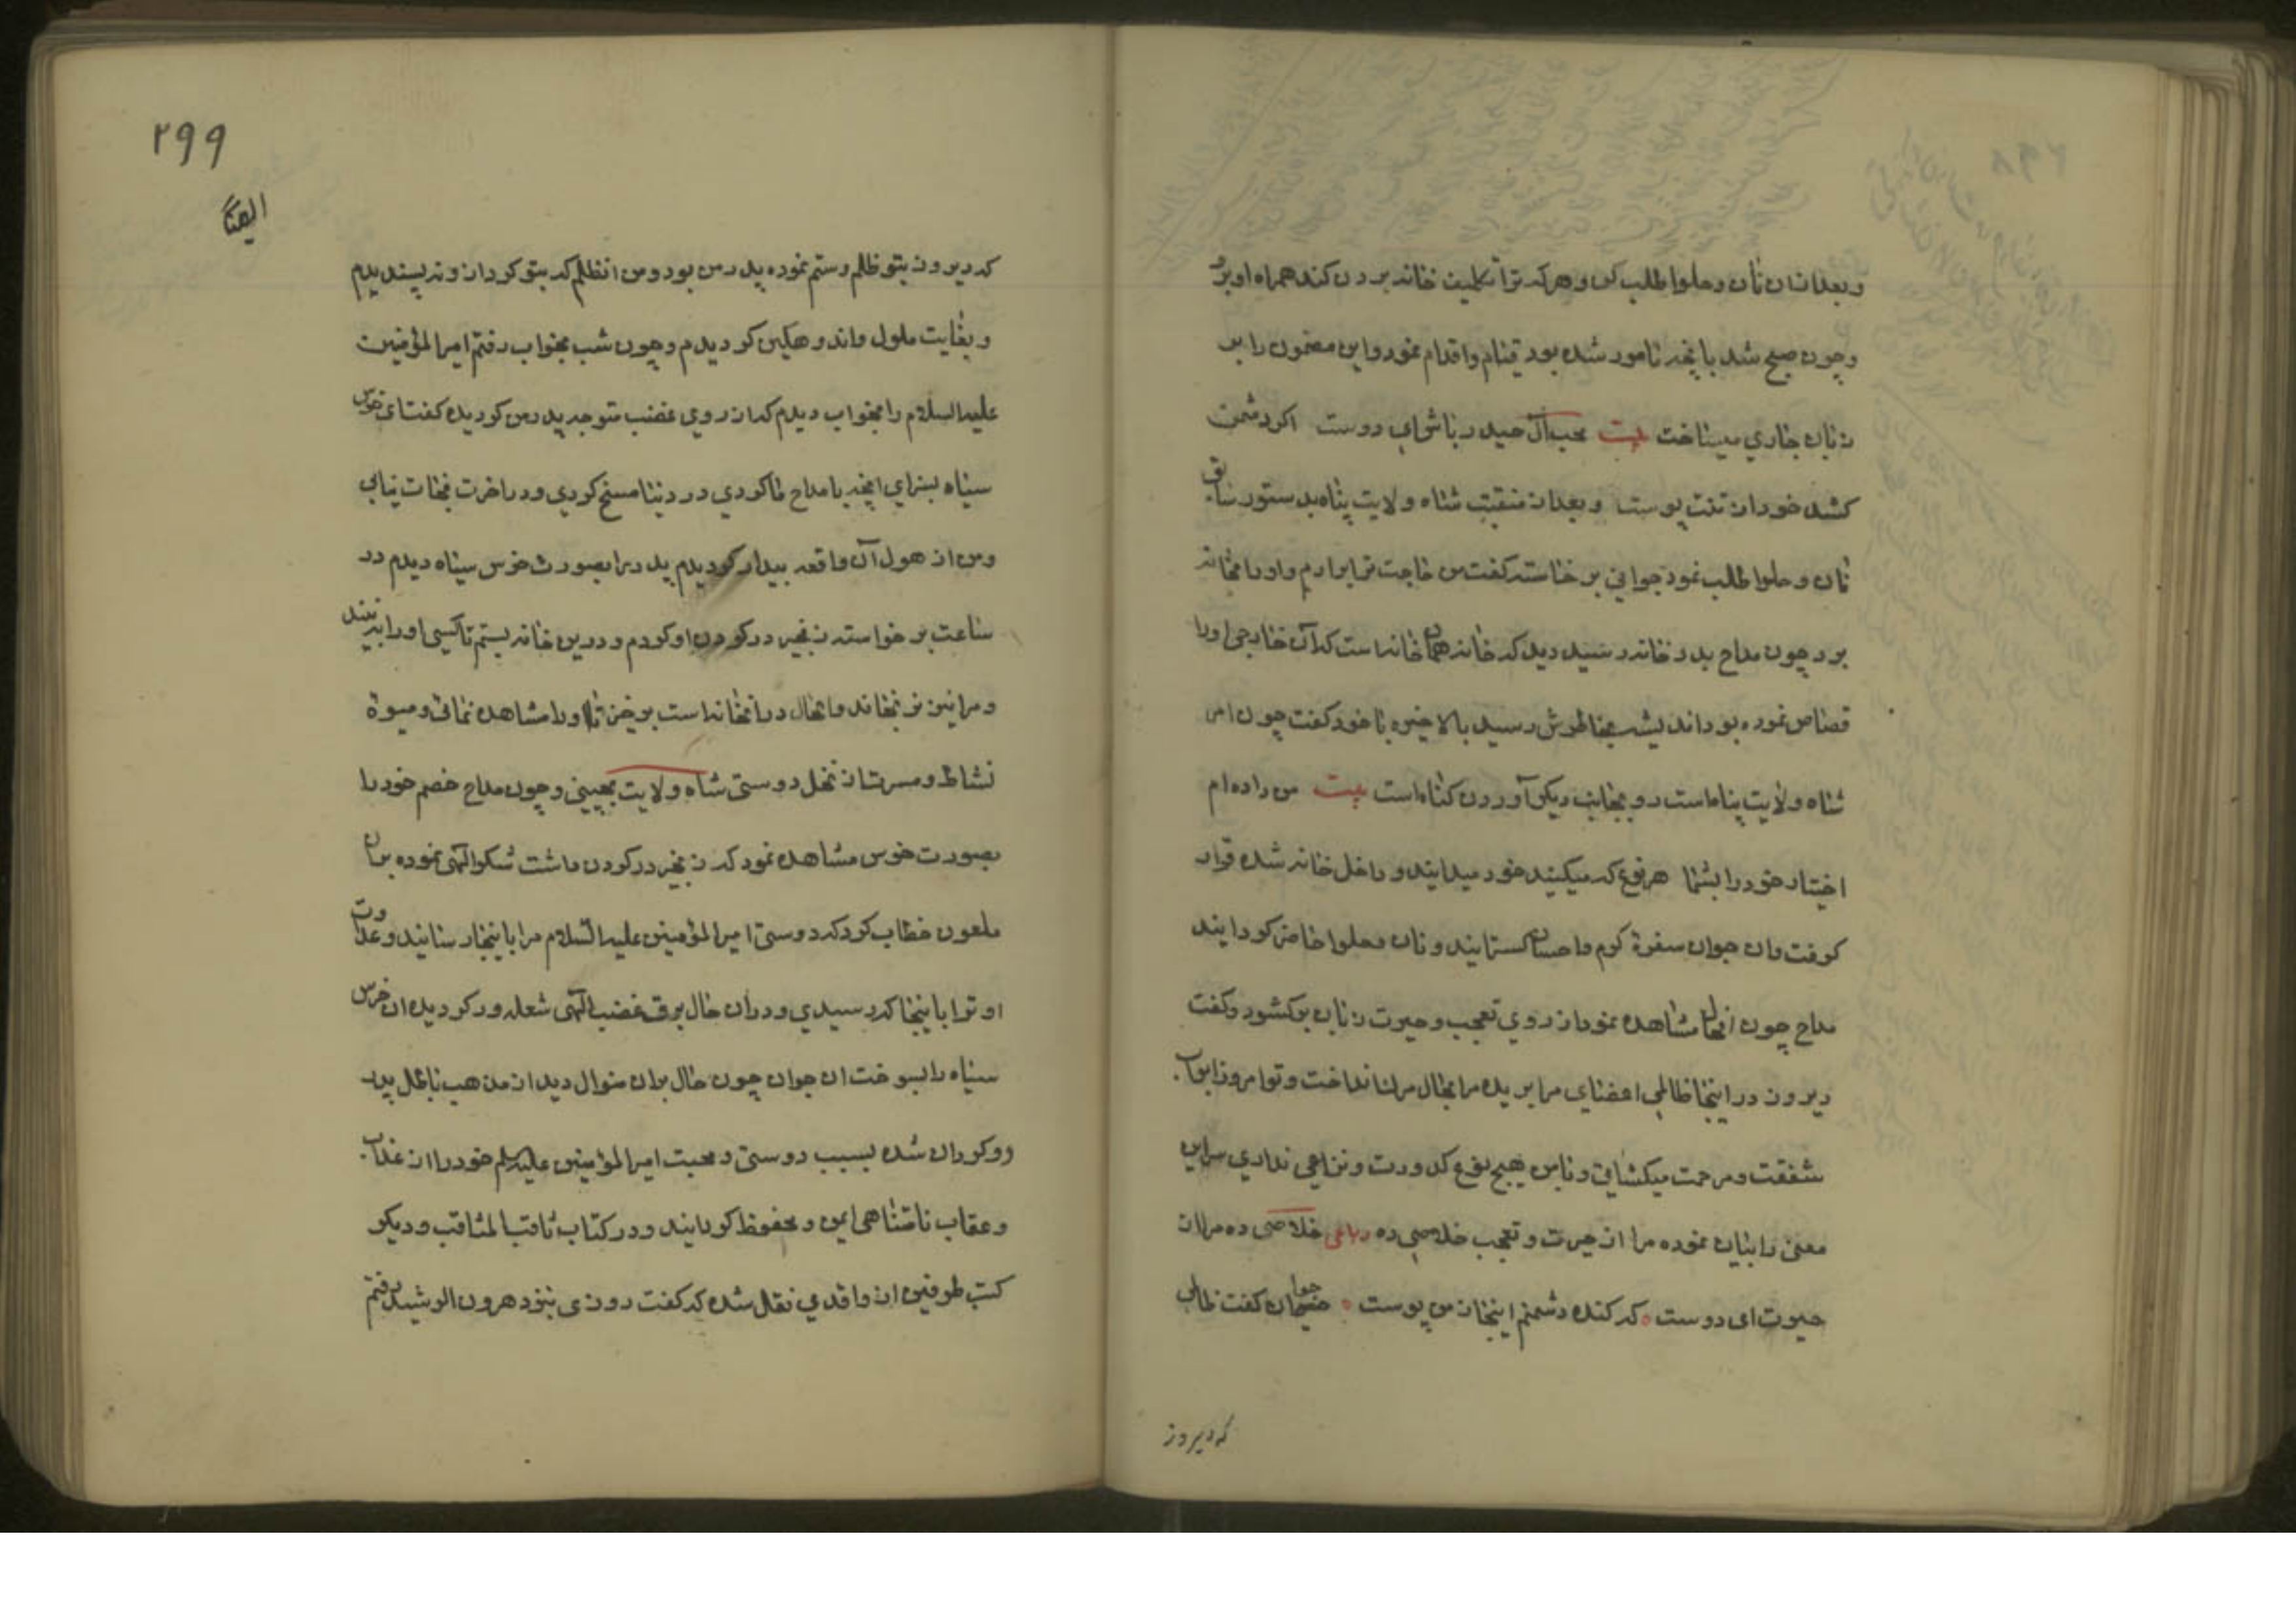 وبعدازان نان وحلوا طلب کن وهرکه ترا تکلیف خانه بردن کند همراه او برو
وچون صبح شد بانچه مامور شده بود قیام واقدام نمود واین مضمون را بر
زبان جاری میساخت بیت محب آل حیدر باش ای دوست اکر دشمن
کشد خود از تنت پوست وبعد از منقبت شاه ولایت پناه بدستور سابق
نان وحلوا طلب نمود جوانی برخاسته کفت من حاجت ترا برارم واورا بخانه
برد چون مداح بدر خانه رسید دید که خانه همان خانه است که آن خارجی اورا
قصاص نموده بود اندیشه بخاطرش رسید بالاخیره با خود کفت چون امر
شاه ولایت پناه است رو بجانب دیکر آوردن کناه است بیت من داده ام
اختیار خود را بشما هر نوع که میکنید خود میدانید وداخل خانه شده قرار
کرفت وان جوان سفرۀ کرم واحسان کسترانید ونان وحلوا حاضر کردانید
مداح چون انحال مشاهده نمود از روی تعجب وحیرت زبان برکشود وکفت
دیروز در اینجا ظالمی اعضای مرا بریده مرا بحال مرک انداخت وتو امروز ابواب
شفقت ومرحمت میکشائی وبا من هیچ نوع کدورت ونزاعی نداری سر این
معنی را بیان نموده مرا از حیرت وتعجب خلاصی ده رباعی خلاصی ده مرا از
حیرت ای دوست که کنده دشمنم اینجا ز من پوست جوان کفت ظالمی
که دیروز
۲۹۹
که دیروز بتو ظلم وستم نموده پدر من بود ومن ازظلم که بتو کرد ازو نه پسندیدم
وبغایت ملول واندوهکین کردیدم وچون شب بخواب رفتم امیرالمؤمنین
علیه السلام را بخواب دیدم که از روی غضب متوجه پدر من کردیده کفت ای خرس
سیاه بسزای انچه با مداح ما کردی در دنیا مسخ کردی ودر اخرت نجات نیابی
ومن از هول آن واقعه بیدار کردیدم پدر را بصورت خرس سیاه دیدم در
ساعت برخواسته زنجیر در کردن او کردم ودرین خانه بستم تا کسی اورا نه بیند
ومرا نیز نرنجاند والحال در انخانه است برخیز تا اورا مشاهده نمائی ومیوۀ
نشاط ومسرت از نخل دوستی شاه ولایت بچینی وچون مداح خصم خود را
بصورت خرس مشاهده نمود که زنجیر در کردن داشت شکر الهی نموده بران
ملعون خطاب کرد که دوستی امیرالمؤمنین علیه السلام مرا باینجا رسانید وعداوت
او ترا باینجا که رسیدی ودران حال برق غضب الهی شعله ور کردیده ان خرس
سیاه را بسوخت ان جوان چون حال بران منوال دید از مذهب باطل پدر
روکردان شده بسبب دوستی ومحبت امیرالمؤمنین علیه السلم خود را از عذاب
وعقاب نامتناهی ایمن ومحفوظ کردانید ودر کتاب ثاقب المناقب ودیکر
کتب طرفین از واقدی نقل شده که کفت روزی بنزد هرون الرشید رفتم